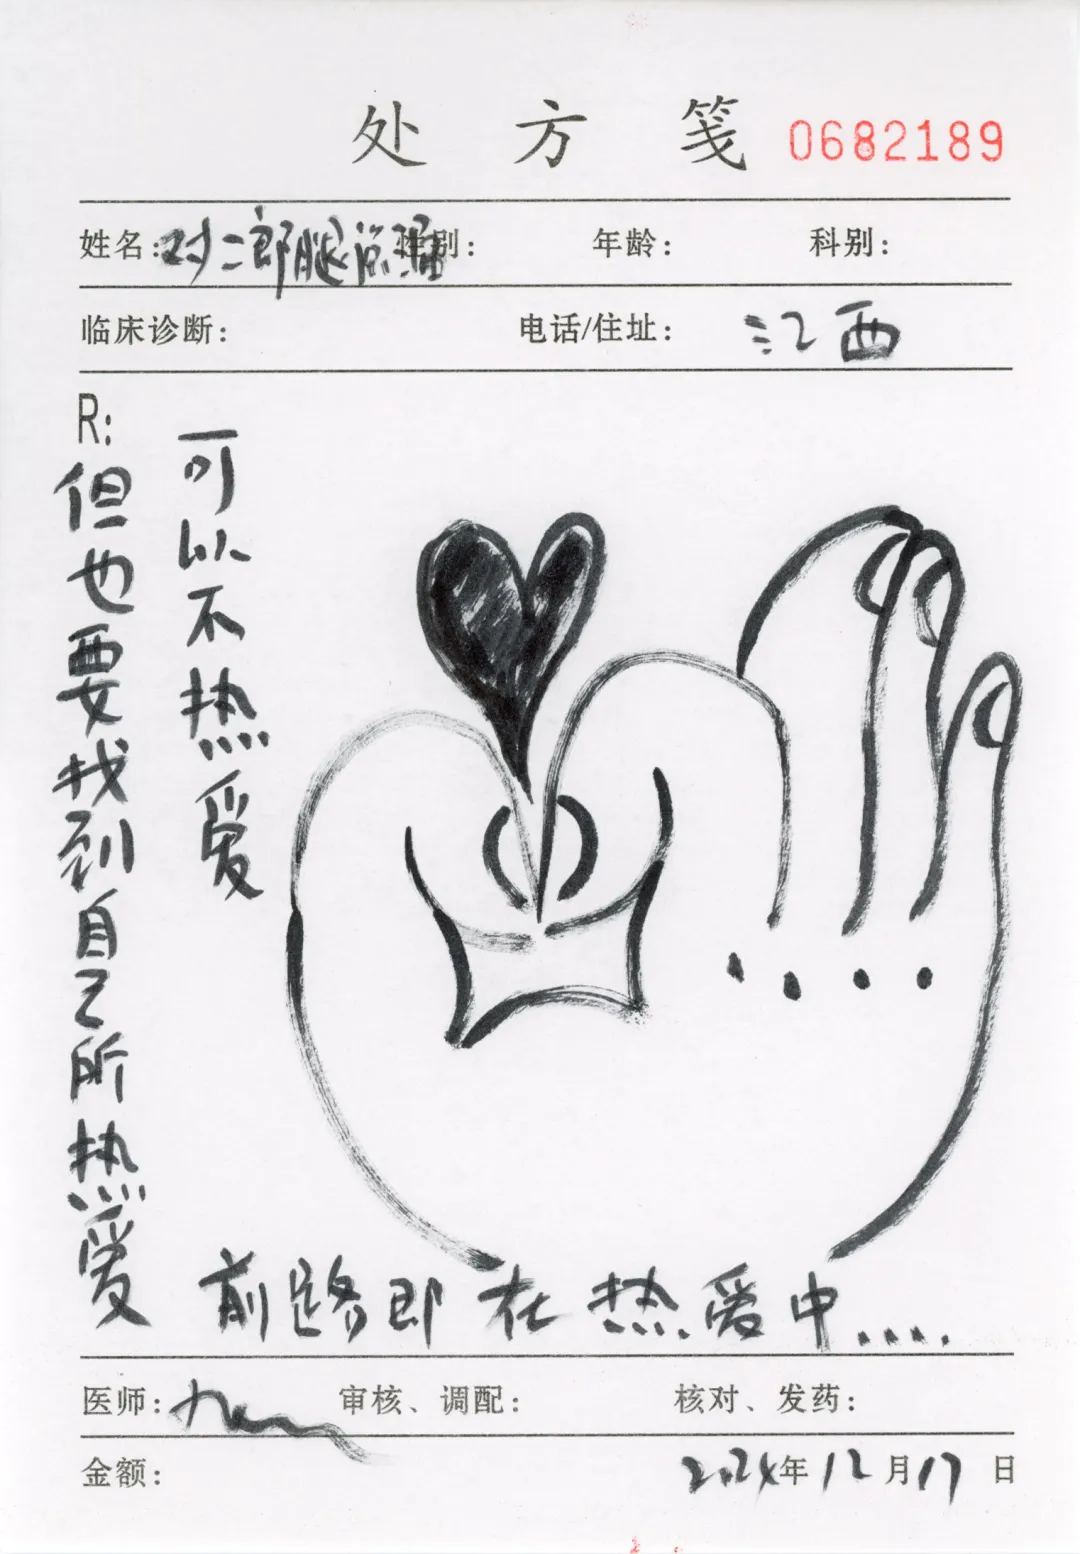 处方笺 0682189
姓名:对二郎腿 性别: 年龄: 科别:
临床诊断: 电话/住址: 江西
R:
可以不热爱
但也要找到自己所热爱
前路即在热爱中....
医师: 审核、调配: 核对、发药:
金额: 2024年12月17日